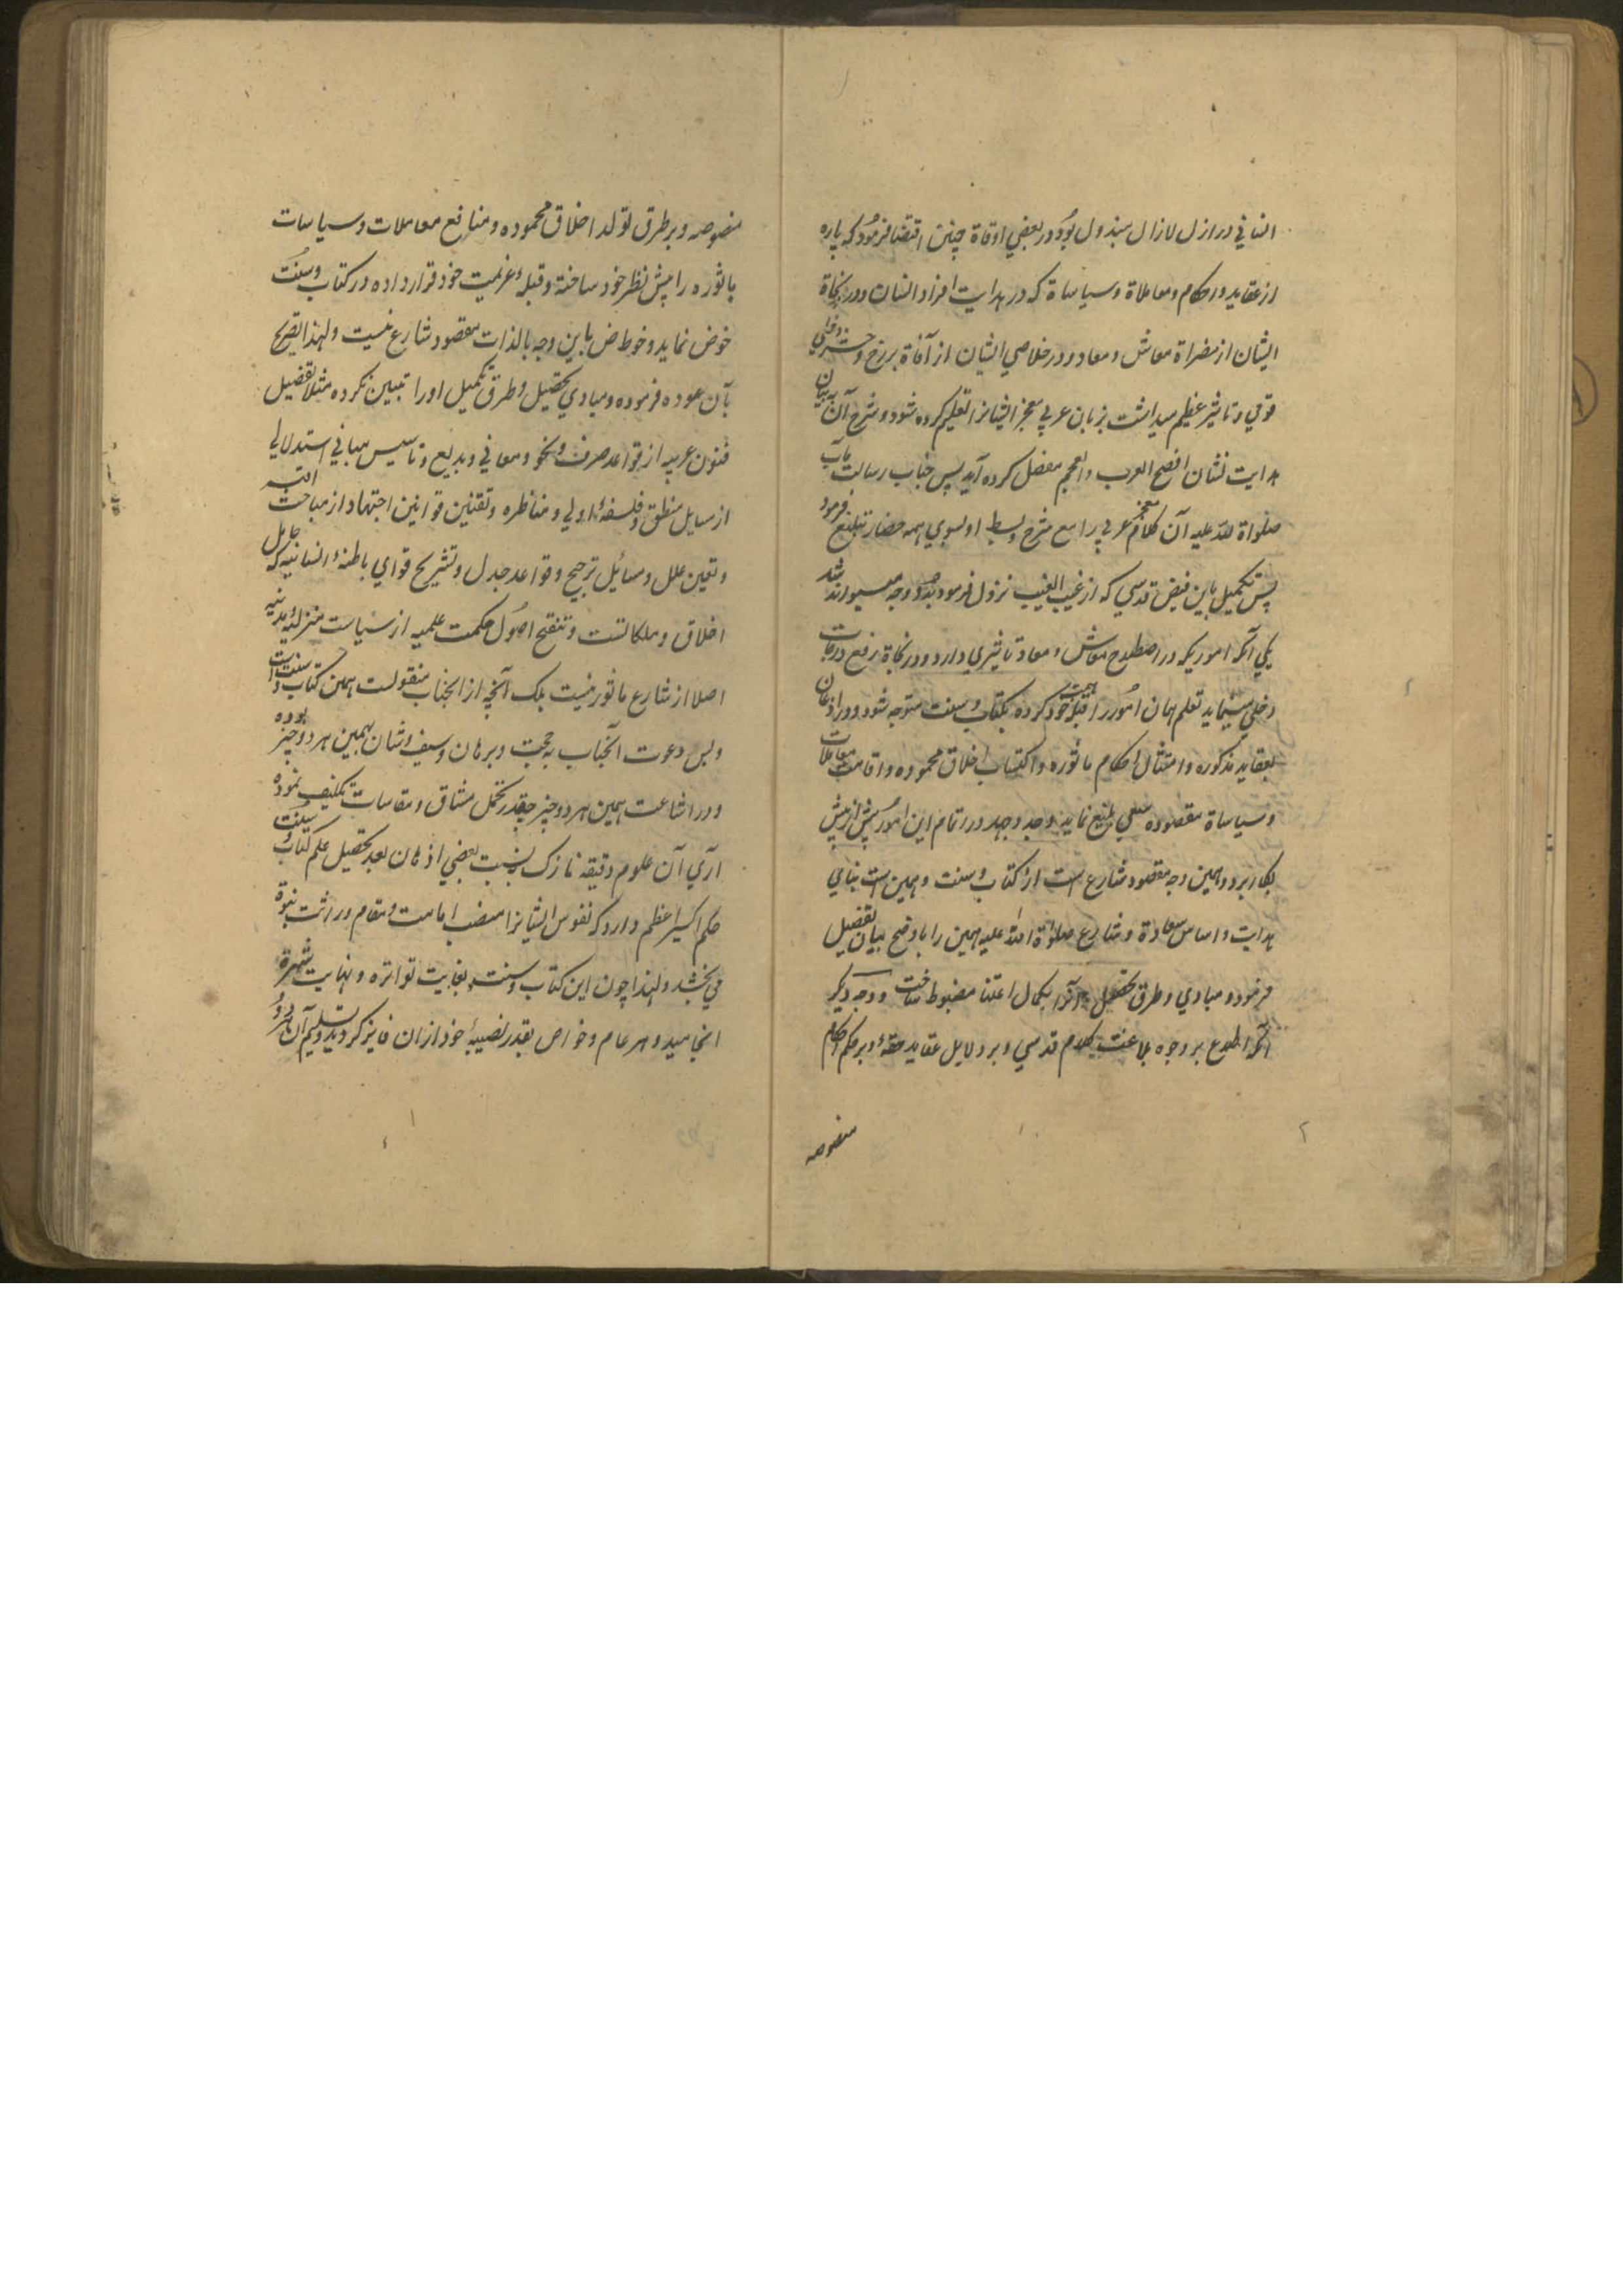 انسانی در ازل لازال مبذول بود در بعضی اوقاة چنین اقتضا فرمود که پاره
از عقاید و احکام و معاملاة و سیاساة که در هدایت افراد انسان و در نجاة
ایشان از مضراة معاش و معاد و در خلاصی ایشان از آفاة برزخ و حشر دخلی
قوی و تاثیر عظیم میداشت بزبان عربی معجز ایشانرا تعلیم کرده شود و شرح آن به بیان
هدایت نشان افصح العرب والعجم مفصل کرده آید پس جناب رسالت مآب
صلواة الله علیه آن کلام معجز عربی را مع شرح و بسط او بسوی همه حضار تبلیغ فرمود
پس تکمیل باین فیض قدسی که از غیب الغیب نزول فرموده بدو وجه میسر تواند شد
یکی آنکه اموریکه در اصطلاح معاش و معاد تاثیری دارد و در نجاة و رفع درجات
دخلی مینماید تعلم همان امور را قبلۀ همت خود کرده بکتاب و سنت متوجه شود و در اذعان
بعقاید مذکوره و امتثال احکام ماثوره و اکتساب اخلاق محموده و اقامت معاملات
و سیاساة مقصوده سعی بلیغ نماید و جد و جهد در اتمام این امور پیش از پیش
بکار برد و همین وجه مقصود شارع است از کتاب و سنت و همین است بنای
هدایت و اساس سعادة و شارع صلوة الله علیه همین را باوضح بیان تفصیل
فرمود و مبادی و طرق تحصیل آنرا بکمال اعتنا مضبوط ساخت و وجه دیگر
آنکه اطلاع بر وجوه بلاغت کلام قدسی و بر دلایل عقاید حقه و بر حکم احکام
منصوصه
منصوصه و بر طرق تولد اخلاق محموده و منافع معاملات و سیاسات
ماثوره را پیش نظر خود ساخته و قبلۀ عزیمت خود قرار داده در کتاب و سنت
خوض نماید و خوض باین وجه بالذات مقصود شارع نیست و لهذا تصریح
بآن نموده فرموده و مبادی تحصیل و طرق تکمیل او را تبیین نکرده مثلا تفصیل
فنون عربیه از قواعد صرف و نحو و معانی و بدیع و تاسیس مبانی استدلالی
از مسایل منطق و فلسفۀ اولی و مناظره و تقنین قوانین اجتهاد از مباحث اقیسه
و تعین علل و مسائل ترجیح و قواعد جدل و تشریح قوای باطنۀ انسانیه که حامل
اخلاق و ملکاتست و تنقیح اصول حکمت علمیه از سیاست منزلیه و مدنیه
اصلا از شارع ماثور نیست بلک آنچه از انجناب منقولست همین کتاب و سنت است
و بس دعوت آنجناب به حجت و برهان و سیف و سنان بهمین هر دو چیز بوده
و در اشاعت همین هر دو چیز چقدر تحمل مشاق و مقاسات تکلیف نموده
آری آن علوم دقیقه نازک بنسبت بعضی اذهان بعد تحصیل علم کتاب و سنت
حکم اکسیر اعظم دارد که نفوس ایشانرا منصب امامت و مقام وراثت نبوة
می بخشد و لهذا چون این کتاب و سنت بغایت تواتره و نهایت شهرة
انجامید و هر عام و خواص بقدر نصیبۀ خود ازان فایز گردید و تسلیم آن هر دو